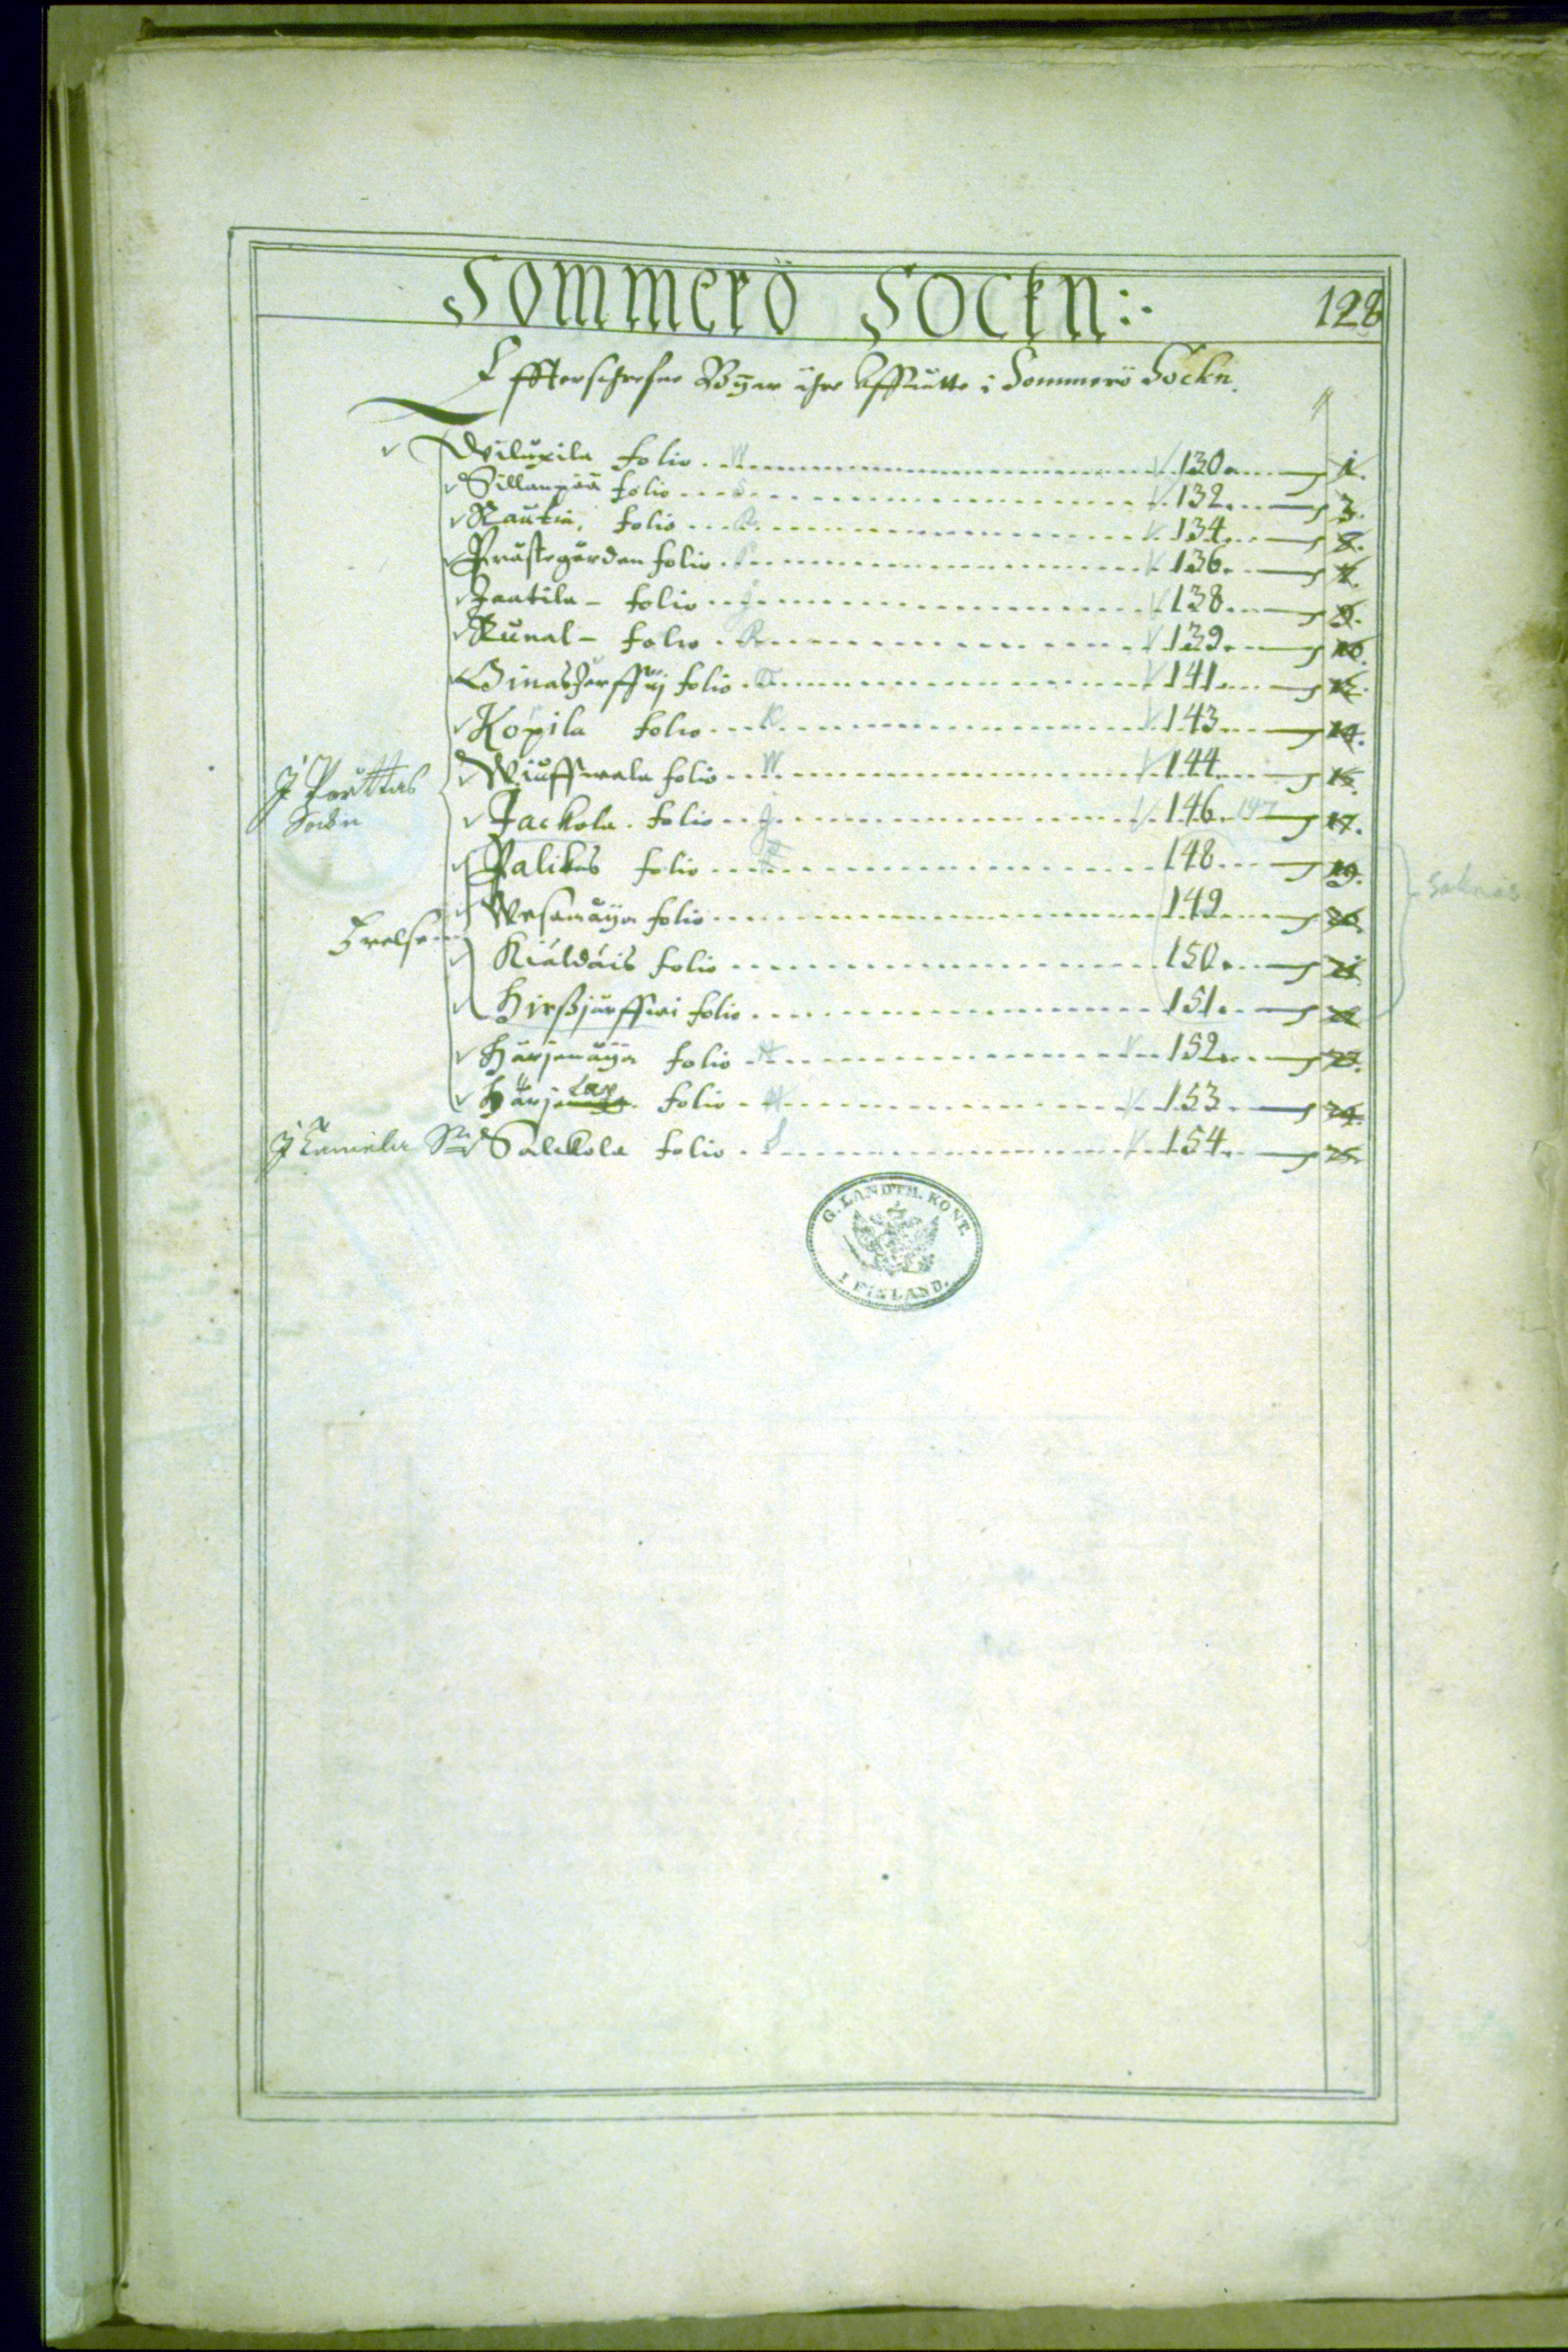 Sommerö Sockn:- 128
Effterschrefne Byar ähre Affmätte i Sommerö Sockn.
Viluxila folio. W 130. 1.
Sillanpää folio S 132. 3.
Rautin, folio R 134. 8.
Prästegården folio. P 136. 7.
Jaatila - folio J 138. 9.
Runal - folio. R 139. 10.
folio. 141. 12.
Kopila folio K 143. 14.
J Pörttas Sockn
Wiuffwala folio W 144. 15.
Jackola. folio J 146. 147 17.
Palikas folio 148 19. Saknas
Frelse
folio 149 20.
Kiäldäis folio 150. 21
Hirßjärffwi folio 151. 22
Härjänäya folio H 152. 23.
Härjelax folio H 153 24.
J Tamela Sn Salckola folio S 154. 25.
G. LANDTM. KONT.
I FINLAND.